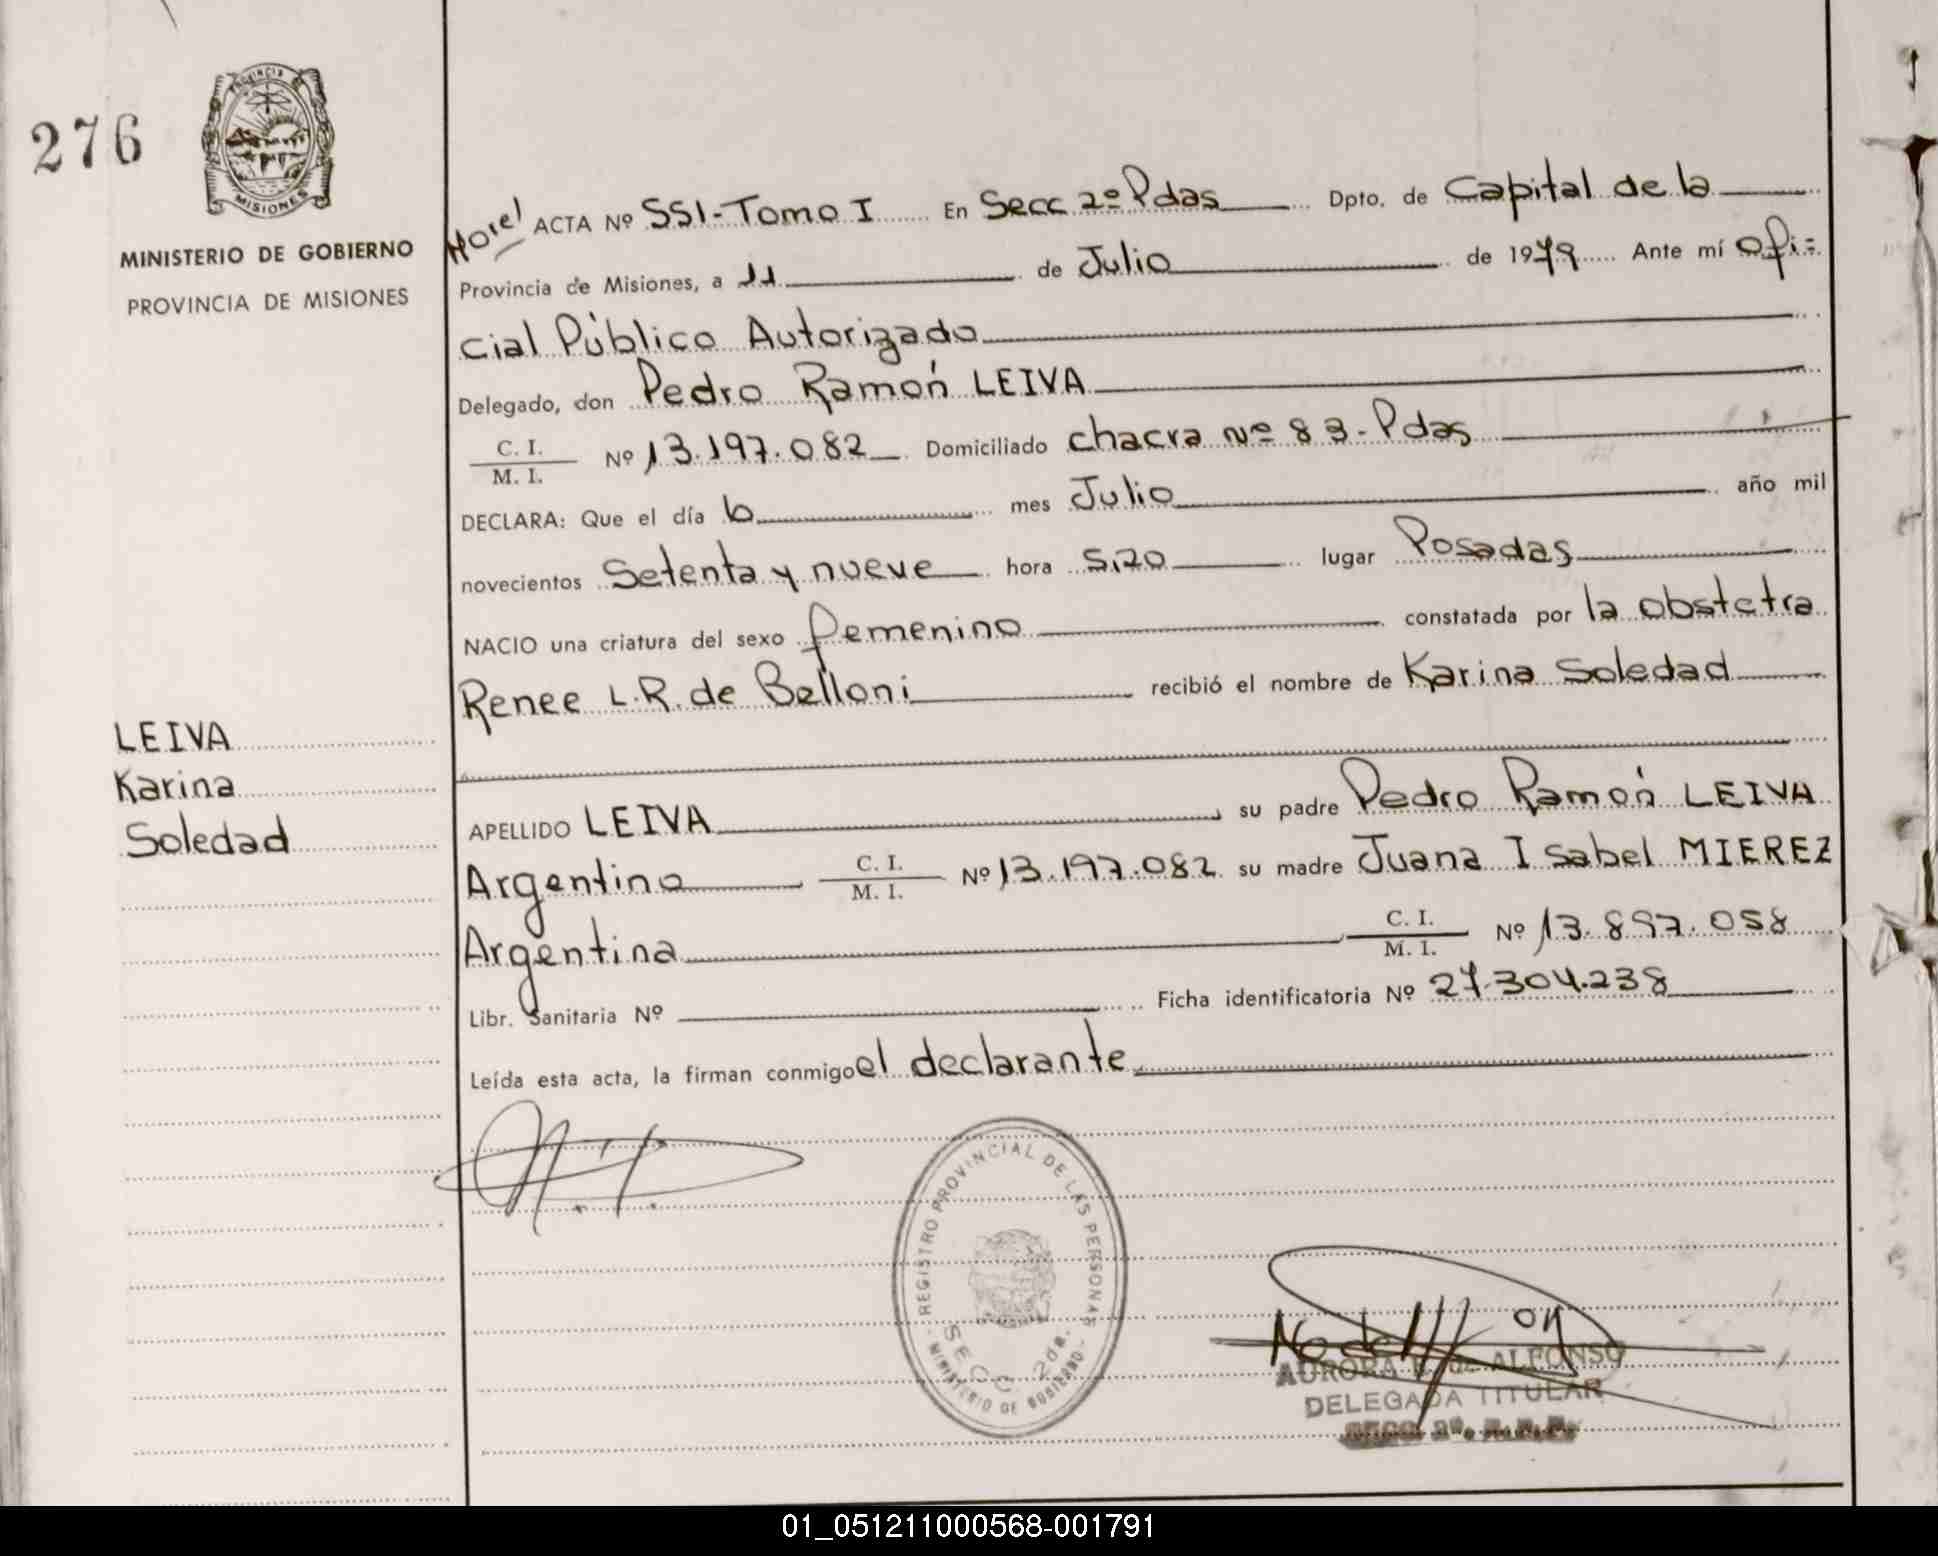 276
PROVINCIA
MISIONES
MINISTERIO DE GOBIERNO
PROVINCIA DE MISIONES
ACTA Nº 551-Tomo I En Secc 2º Pdas Dpto. de Capital de la
Provincia de Misiones, a 11 de Julio de 1979 Ante mí Ofi=
cial Público Autorizado
Delegado, don Pedro Ramón LEIVA
C. I.
M. I.
Nº 13.197.082 Domiciliado chacra Nº 83-Pdas
DECLARA: Que el día 6 mes Julio año mil
novecientos Setenta y nueve hora 5,20 lugar Posadas
NACIO una criatura del sexo femenino constatada por la obstetra
Renee L.R. de Belloni recibió el nombre de Karina Soledad
LEIVA
Karina
Soledad
APELLIDO LEIVA su padre Pedro Ramón LEIVA
Argentino C. I. M. I. Nº 13.197.082 su madre Juana Isabel MIEREZ
Argentina C. I. M. I. Nº 13.897.058
Libr. Sanitaria Nº Ficha identificatoria Nº 27.304.238
Leída esta acta, la firman conmigo el declarante
REGISTRO PROVINCIAL DE LAS PERSONAS
SECC. 2da.
- MINISTERIO DE GOBIERNO -
AURORA de ALFONSO
DELEGADA TITULAR
01_051211000568-001791